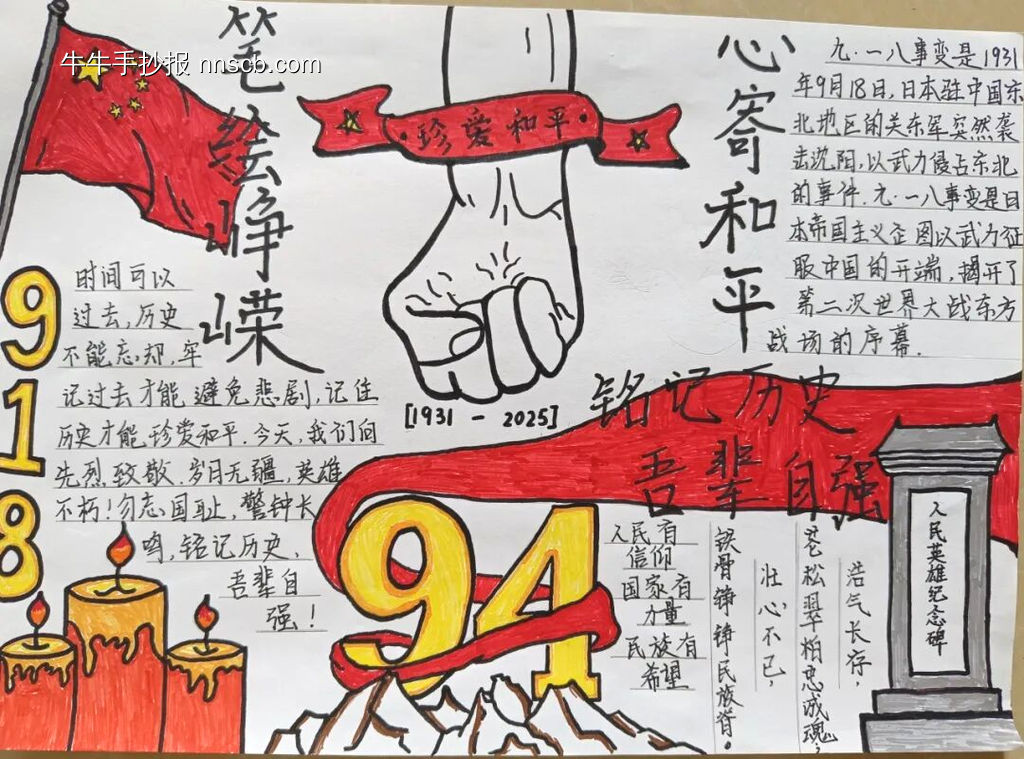 牛牛手抄报 nnscb.com
笔绘峥嵘
心寄和平
·珍爱和平·
九·一八事变是1931
年9月18日,日本驻中国东
北地区的关东军突然袭
击沈阳,以武力侵占东北
的事件.九·一八事变是日
本帝国主义企图以武力征
服中国的开端,揭开了
第二次世界大战东方
战场的序幕.
918
时间可以
过去,历史
不能忘却,牢
记过去才能避免悲剧,记住
历史才能珍爱和平.今天,我们向
先烈致敬.岁月无疆,英雄
不朽!勿忘国耻,警钟长
鸣,铭记历史、
吾辈自
强!
[1931 - 2025]
铭记历史
吾辈自强
94
人民有
信仰
国家有
力量
民族有
希望
浩气长存,
苍松翠柏忠成魂;
壮心不已,
铁骨铮铮民族脊。
人民英雄纪念碑